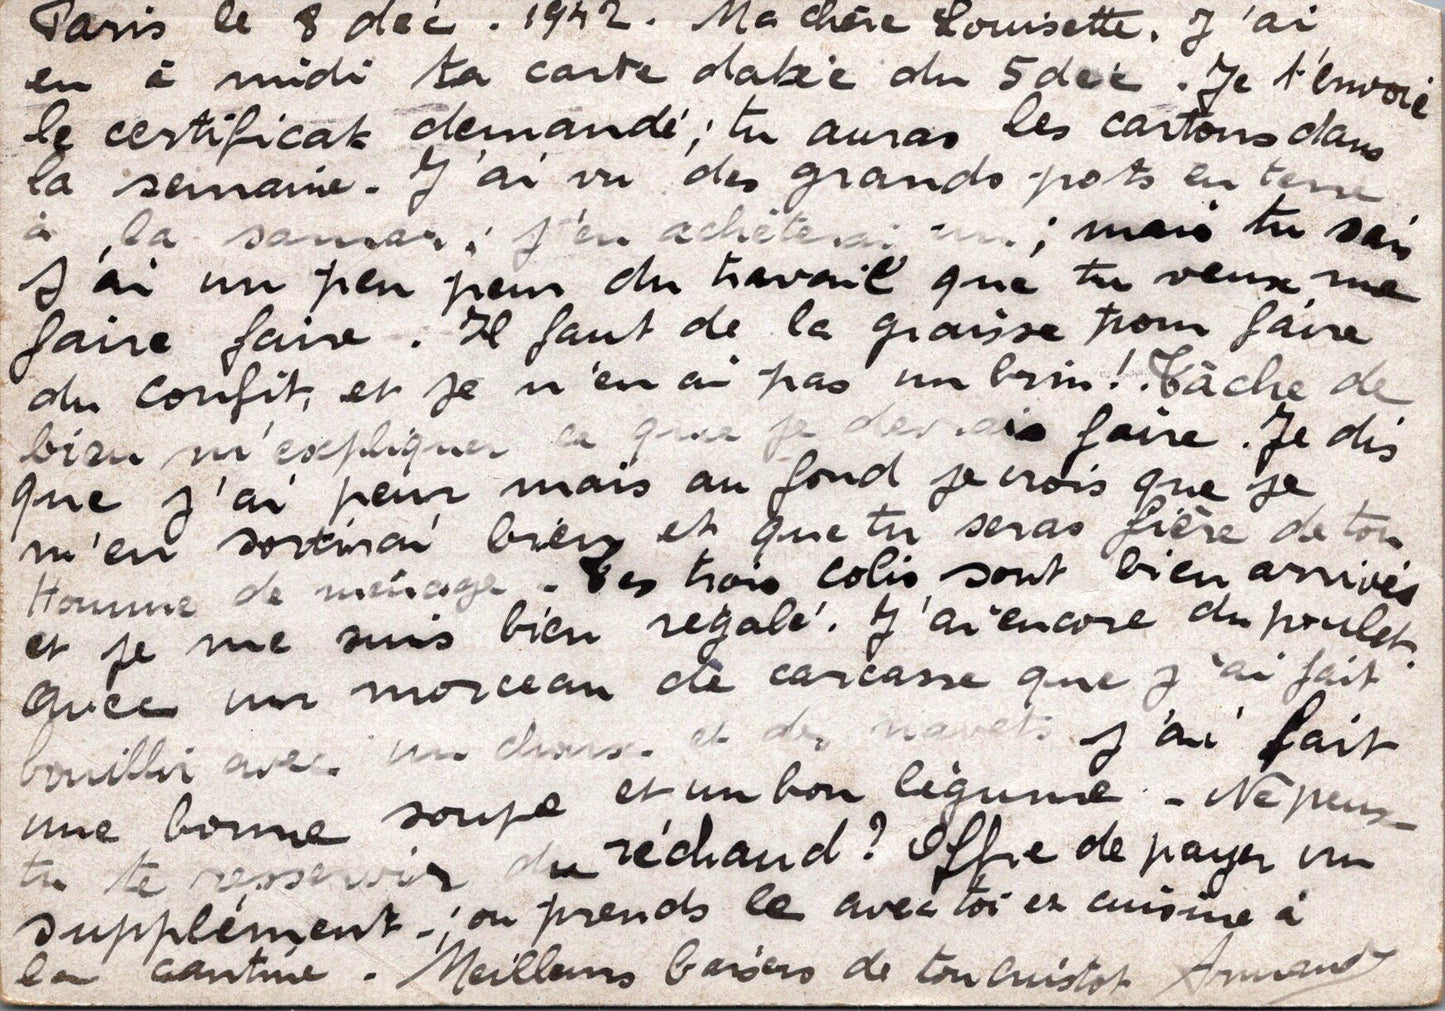 Paris le 8 déc. 1942. Ma chère Louisette. J'ai
eu à midi ta carte datée du 5 déc. Je t'envoie
le certificat demandé; tu auras les cartons dans
la semaine. J'ai vu des grands pots en terre
à la samar; j'en achèterai un; mais tu sais
J'ai un peu peur du travail que tu veux me
faire faire. Il faut de la graisse pour faire
du confit, et je n'en ai pas un brin! Tâche de
bien m'expliquer ce que je devrais faire. Je dis
que j'ai peur mais au fond je crois que je
m'en sortirai bien et que tu seras fière de ton
Homme de ménage. Tes trois colis sont bien arrivés
et je me suis bien régalé. J'ai encore du poulet.
Avec un morceau de carcasse que j'ai fait
bouillir avec un choux et des navets j'ai fait
une bonne soupe et un bon légume. - Ne peux-
tu te resservir du réchaud? Offre de payer un
supplément -; ou prends le avec toi et cuisine à
la cantine. Meilleurs baisers de ton cuistot Armand